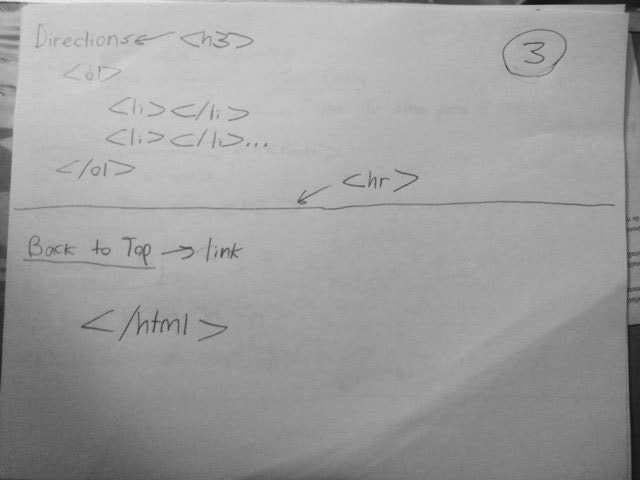 Directions ← <h3>
3
<ol>
<li></li>
<li></li>...
</ol>
<hr>
Back to Top → link
</html>